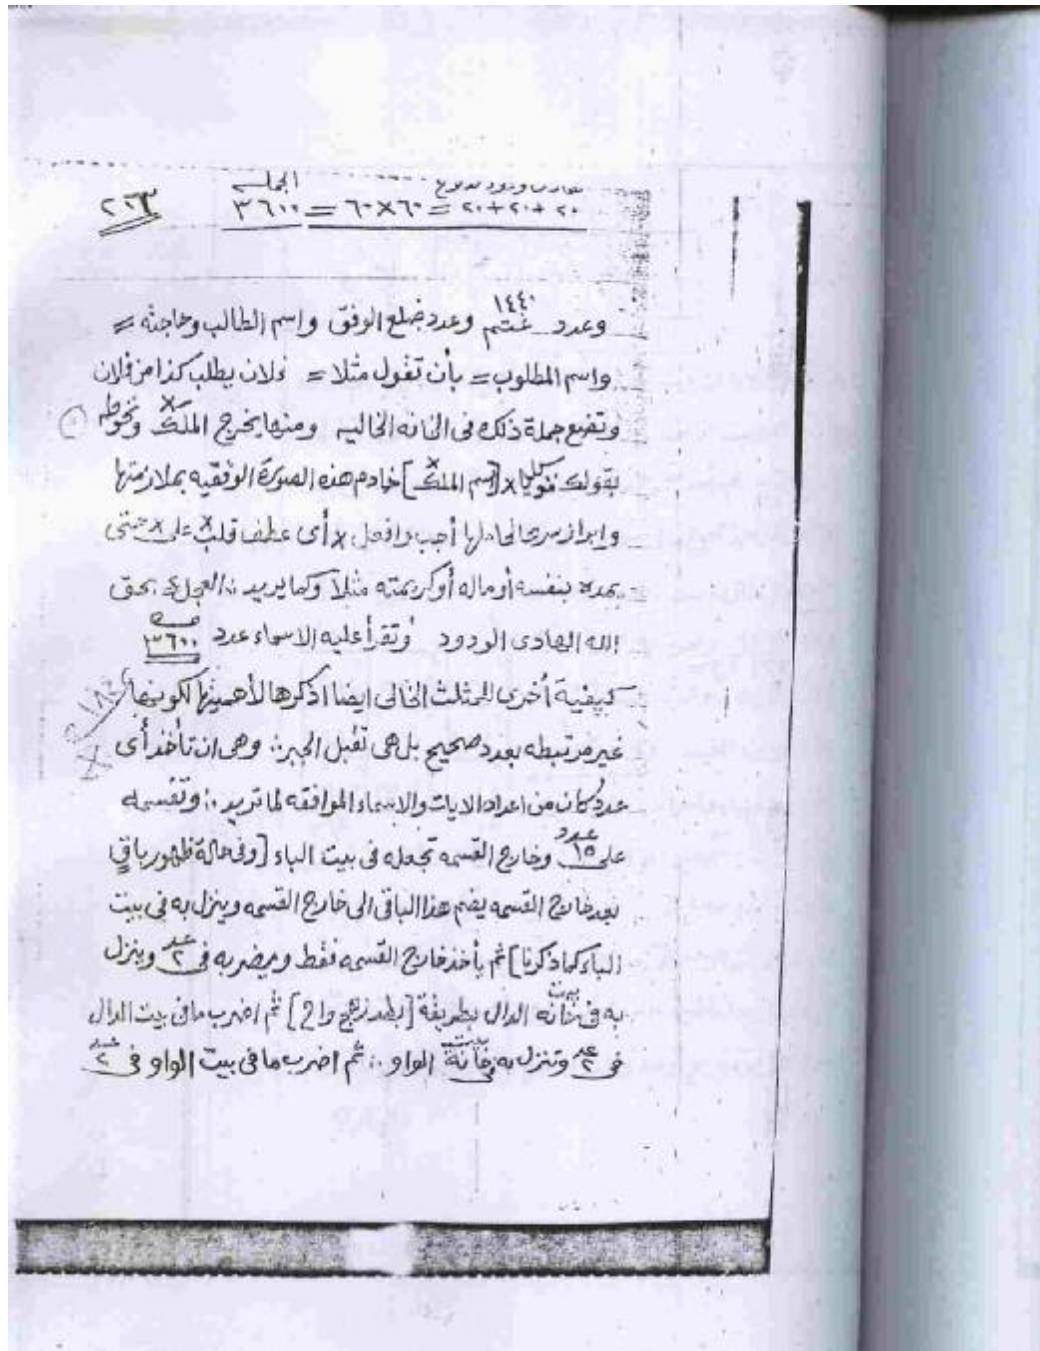 الجملة
٢٠+٢٠+٢٠ = ٦٠×٦٠ = ٣٦٠٠
٢٦٣
١٤٤٠
وعدد غتم وعدد ضلع الوفق واسم الطالب وحاجته =
واسم المطلوب = بأن تقول مثلا = فلان يطلب كذا من فلان
وتضع جملة ذلك فى الخانه الخاليه ومنها يخرج الملك
بقولك [اسم الملك] خادم هذه الصورة الوفقيه بملازمتها
لحاملها أجب وافعل × أى عطف قلب × على × حتى
يمده بنفسه أو ماله أو كريمته مثلا وكما يريد ∴ العجل بحق
الله الهادى الودود وتقرأ عليه الاسماء عدد ٣٦٠٠
كيفية أخرى للمثلث الخالى ايضا اذكرها لأهميتها لكونها
غير مرتبطه بعدد صحيح بل هى تقبل الجبر ∴ وهى ان تأخذ أى
عدد كان من اعداد الايات والاسماء الموافقه لما تريد ∴ وتقسمه
على عدد ١٥ وخارج القسمه تجعله فى بيت الباء [وفى حالة ظهور باقٍ
بعد خارج القسمه يضم هذا الباقى الى خارج القسمه وينزل به فى بيت
الباء كما ذكرنا] ثم يأخذ خارج القسمه فقط ويضربه فى عدد ٢ وينزل
به فى خانه بيت الدال بطريقة [بطد زهج واح] ثم اضرب ما فى بيت الدال
فى عدد ٢ وتنزل به فى خانة بيت الواو ∴ ثم اضرب ما فى بيت الواو فى عدد ٢